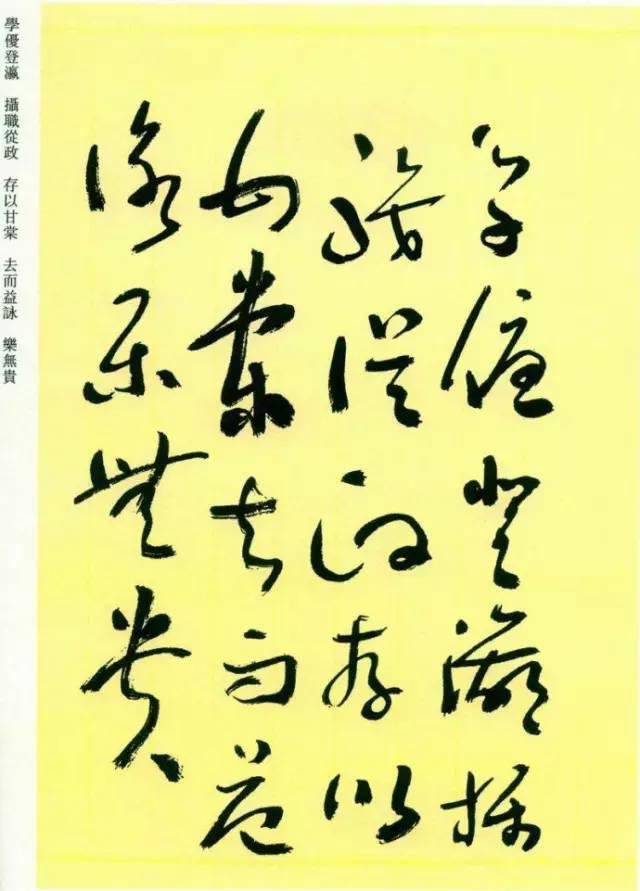 學優登瀛攝
職從政存以
甘棠去而益
詠樂無貴
學優登瀛 攝職從政 存以甘棠 去而益詠 樂無貴